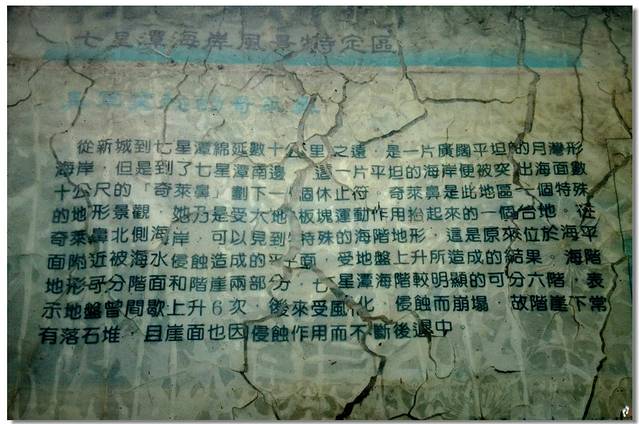 七星潭海岸風景特定區
的奇萊鼻
從新城到七星潭綿延數十公里之遠，是一片廣闊平坦的月灣形
海岸，但是到了七星潭南邊，這一片平坦的海岸便被突出海面數
十公尺的「奇萊鼻」劃下一個休止符。奇萊鼻是此地區一個特殊
的地形景觀，她乃是受大地板塊運動作用抬起來的一個台地。在
奇萊鼻北側海岸，可以見到特殊的海階地形，這是原來位於海平
面附近被海水侵蝕造成的平面，受地盤上升所造成的結果。海階
地形可分階面和階崖兩部分，七星潭海階較明顯的可分六階，表
示地盤曾間歇上升6次，後來受風化、侵蝕而崩塌，故階崖下常
有落石堆，且崖面也因侵蝕作用而不斷後退中。